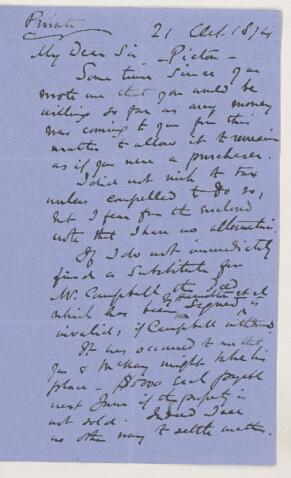 Private
21 Oct. 1874
My Dear Sir - Picton -
Some time since you
wrote me that you would be
willing so far as any money
was coming to you from this
matter to allow it to remain
as if you were a purchaser.
I did not wish to tax
unless compelled to do so,
but I fear from the enclosed
note that I have no alternative.
If I do not immediately
find a substitute for
Mr. Campbell the deed
which has been signed by Hamilton et al is
invalid; if Campbell withdraws.
It has occurred to me that
you & McKay might take his
place - $5000 each payable
next June if the property is
not sold. Indeed I see
no other way to settle matters.